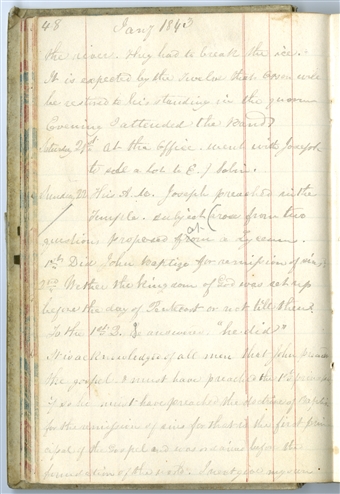 48 Jany 1843
the river. they had to break the ice.
It is expected by the Twelve that Orson will
be restored to his standing in the quorum
Evening I attended the Band.
Saturday 21st At the Office. went with Joseph
to sell a lot to E. J. Sabin.
Sunday 22 This A.M. Joseph preached in the
Temple. subject arose from two
questions proposed from a Lyceum.
at
1st Did John Baptize for remission of sins?
2nd Whether the kingdom of God was set up
before the day of Pentecost or not till then?
To the 1st Q. he answered "he did."
It is acknowledged of all men that John preached
the gospel & must have preached the 1st principles
if so he must have preached the doctrine of Baptism
for the remission of sins for that is the first prin
cipal of the Gospel and was ordained before the
foundation of the world. I next give my own